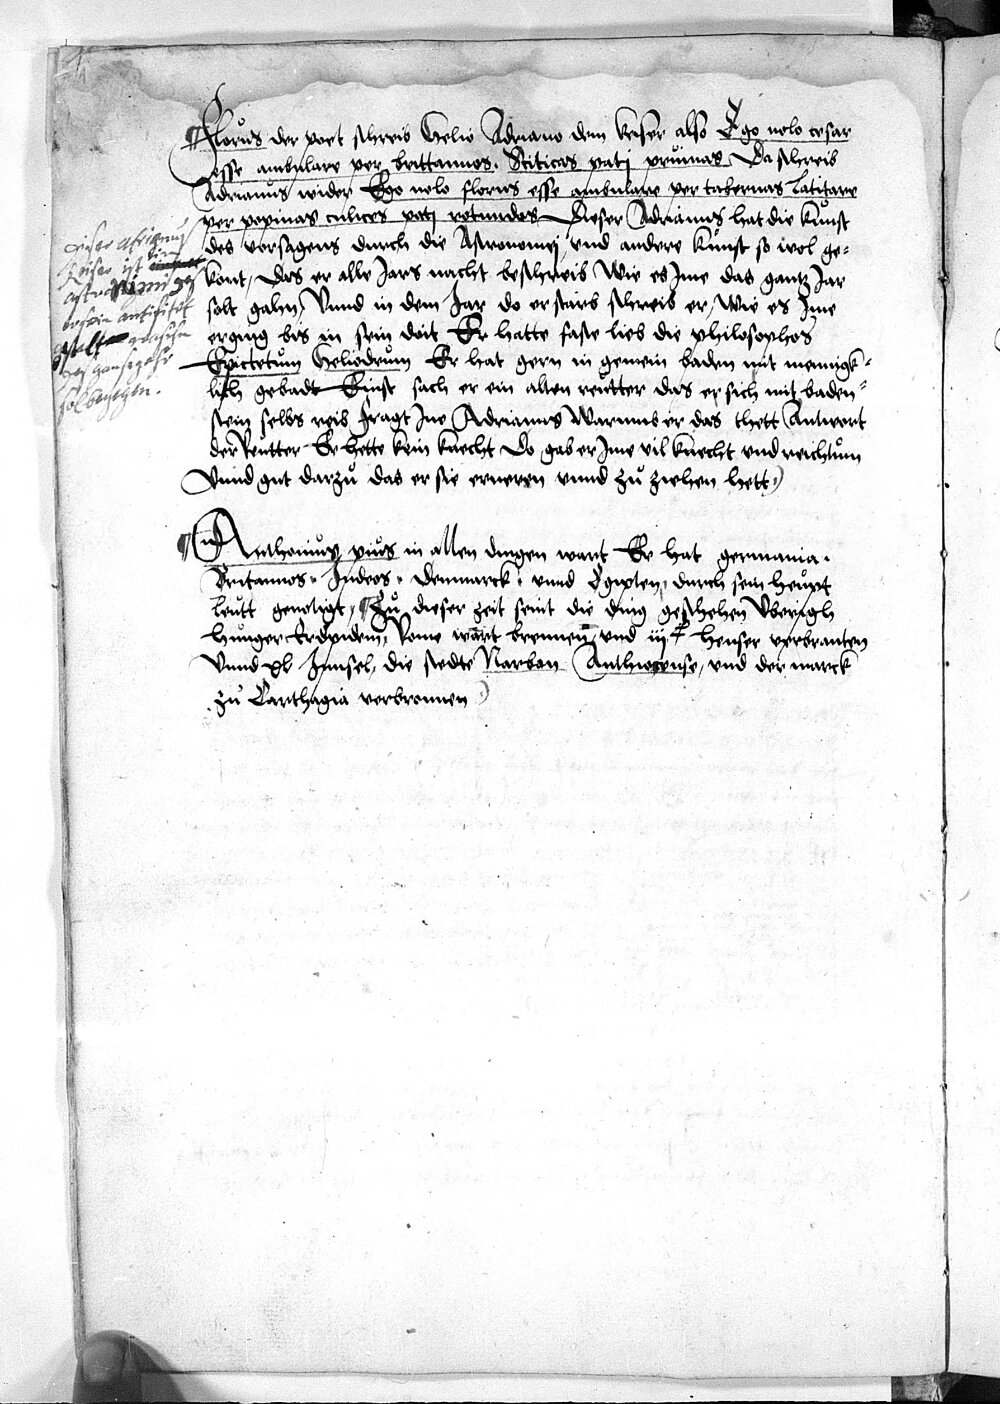 Florus der poet schreib Helio Adriano dem keiser also Ego nolo cesar
esse ambulare per brittannos. Sciticas patj pruinas Da schreib
Adrianus wider Ego nolo florus esse ambulare per tabernas Latitare
per popinas culices patj rotundos Dieser Adrianus hat die kunst
des vorsagens durch die Astronomej vnd andere kunst so wol ge-
kont, Das er alle Jars nacht beschreib Wie es Jme das gantz Jar
solt gahn, Vnnd in dem Jar do er starb schreib er, Wie es Jme
erging bis in sein doit Er hatte faste lieb die philosophos
Epictetum Heliodrum Er hat gern in gemein baden mit mennigk-
lich gebadt Einst sach er ein alten reutter das er sich mit baden-
stein selbs reib fragt Jne Adrianus Warumb er das thett Antwort
der Reutter Er hette kein knecht Do gab er Jme vil knecht vnd reichtum
Vnnd gut darzu das er sie erneren vnnd zu ziehen hett
Anthonius pius in allen dingen wart Er hat germania.
Britannos. Judeos. Denmarck. vnnd Egipten, durch sein heupt
leutt genotigt, Zu dieser zeit seint die ding geschehen
hunger Erdpidem, Rome wart brennen, vnd iij heuser verbranten
Vnnd xl Jnnsel, die stedte Narbon Anthiocense, vnd der marck
zu Carthagia verbronnen
dieser Adrianus
keiser ist